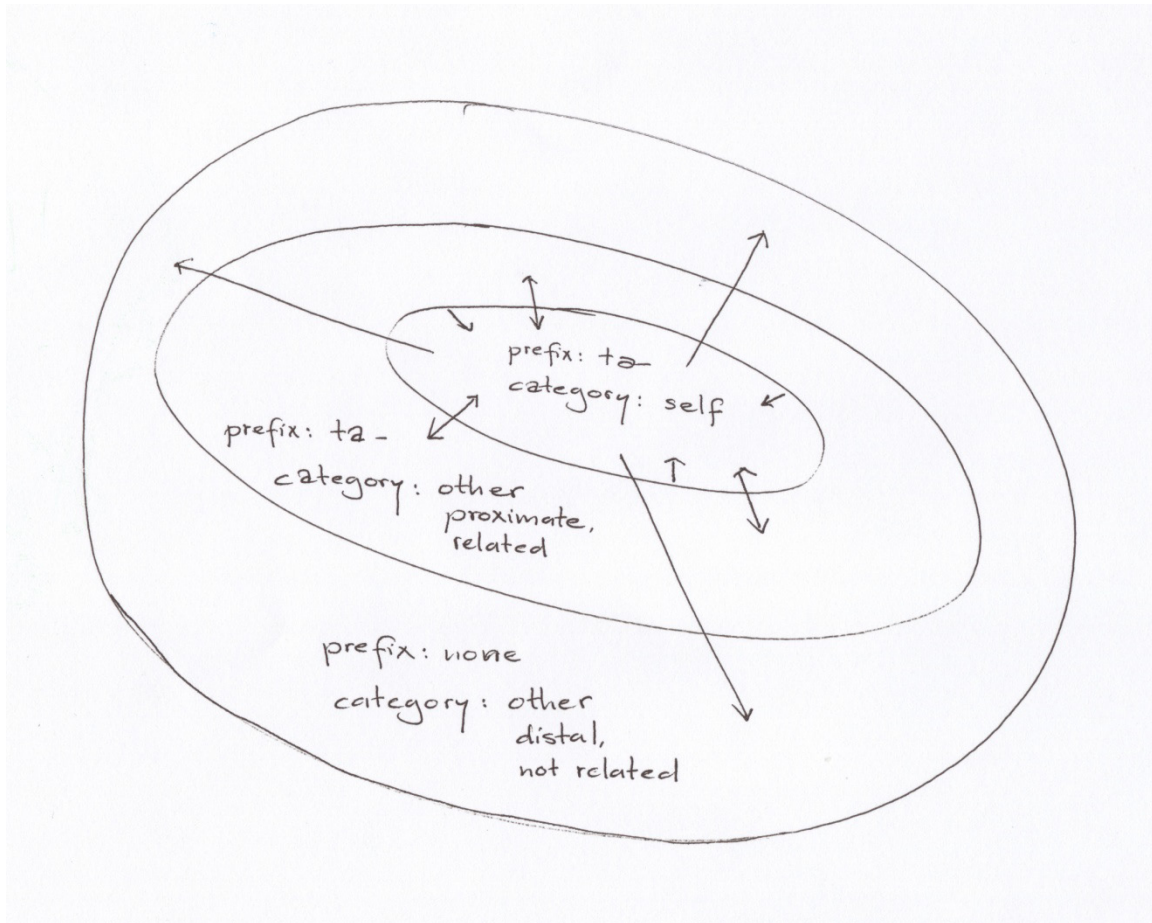 prefix: ta-
category: self
prefix: ta-
category: other
proximate,
related
prefix: none
category: other
distal,
not related